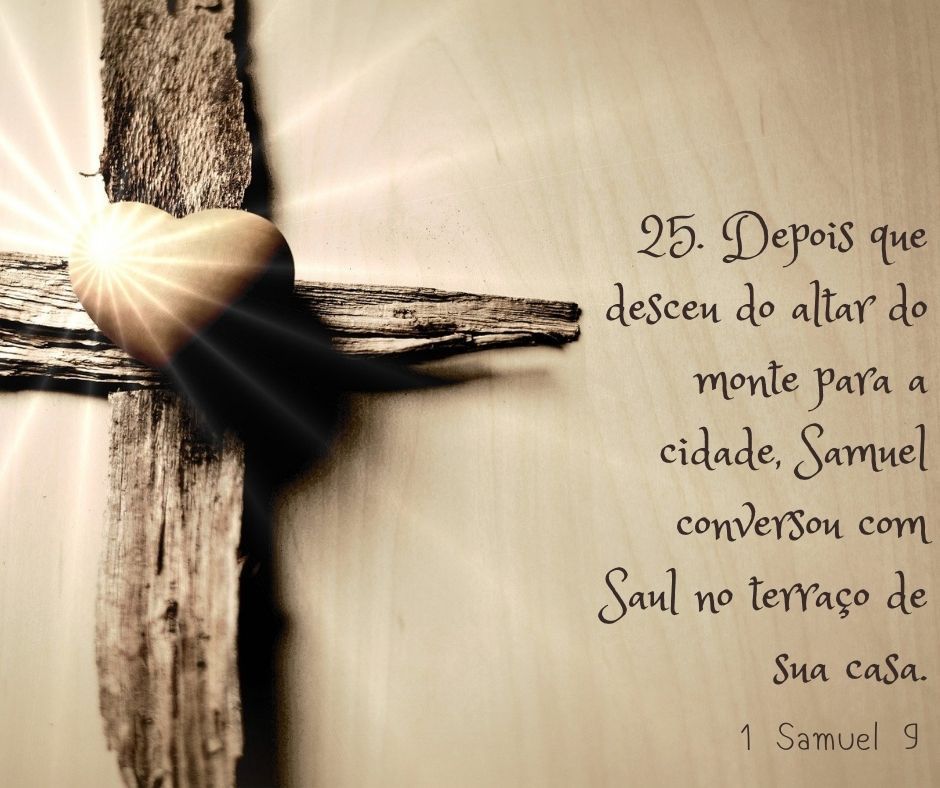 25. Depois que
desceu do altar do
monte para a
cidade, Samuel
conversou com
Saul no terraço de
sua casa.
1 Samuel 9